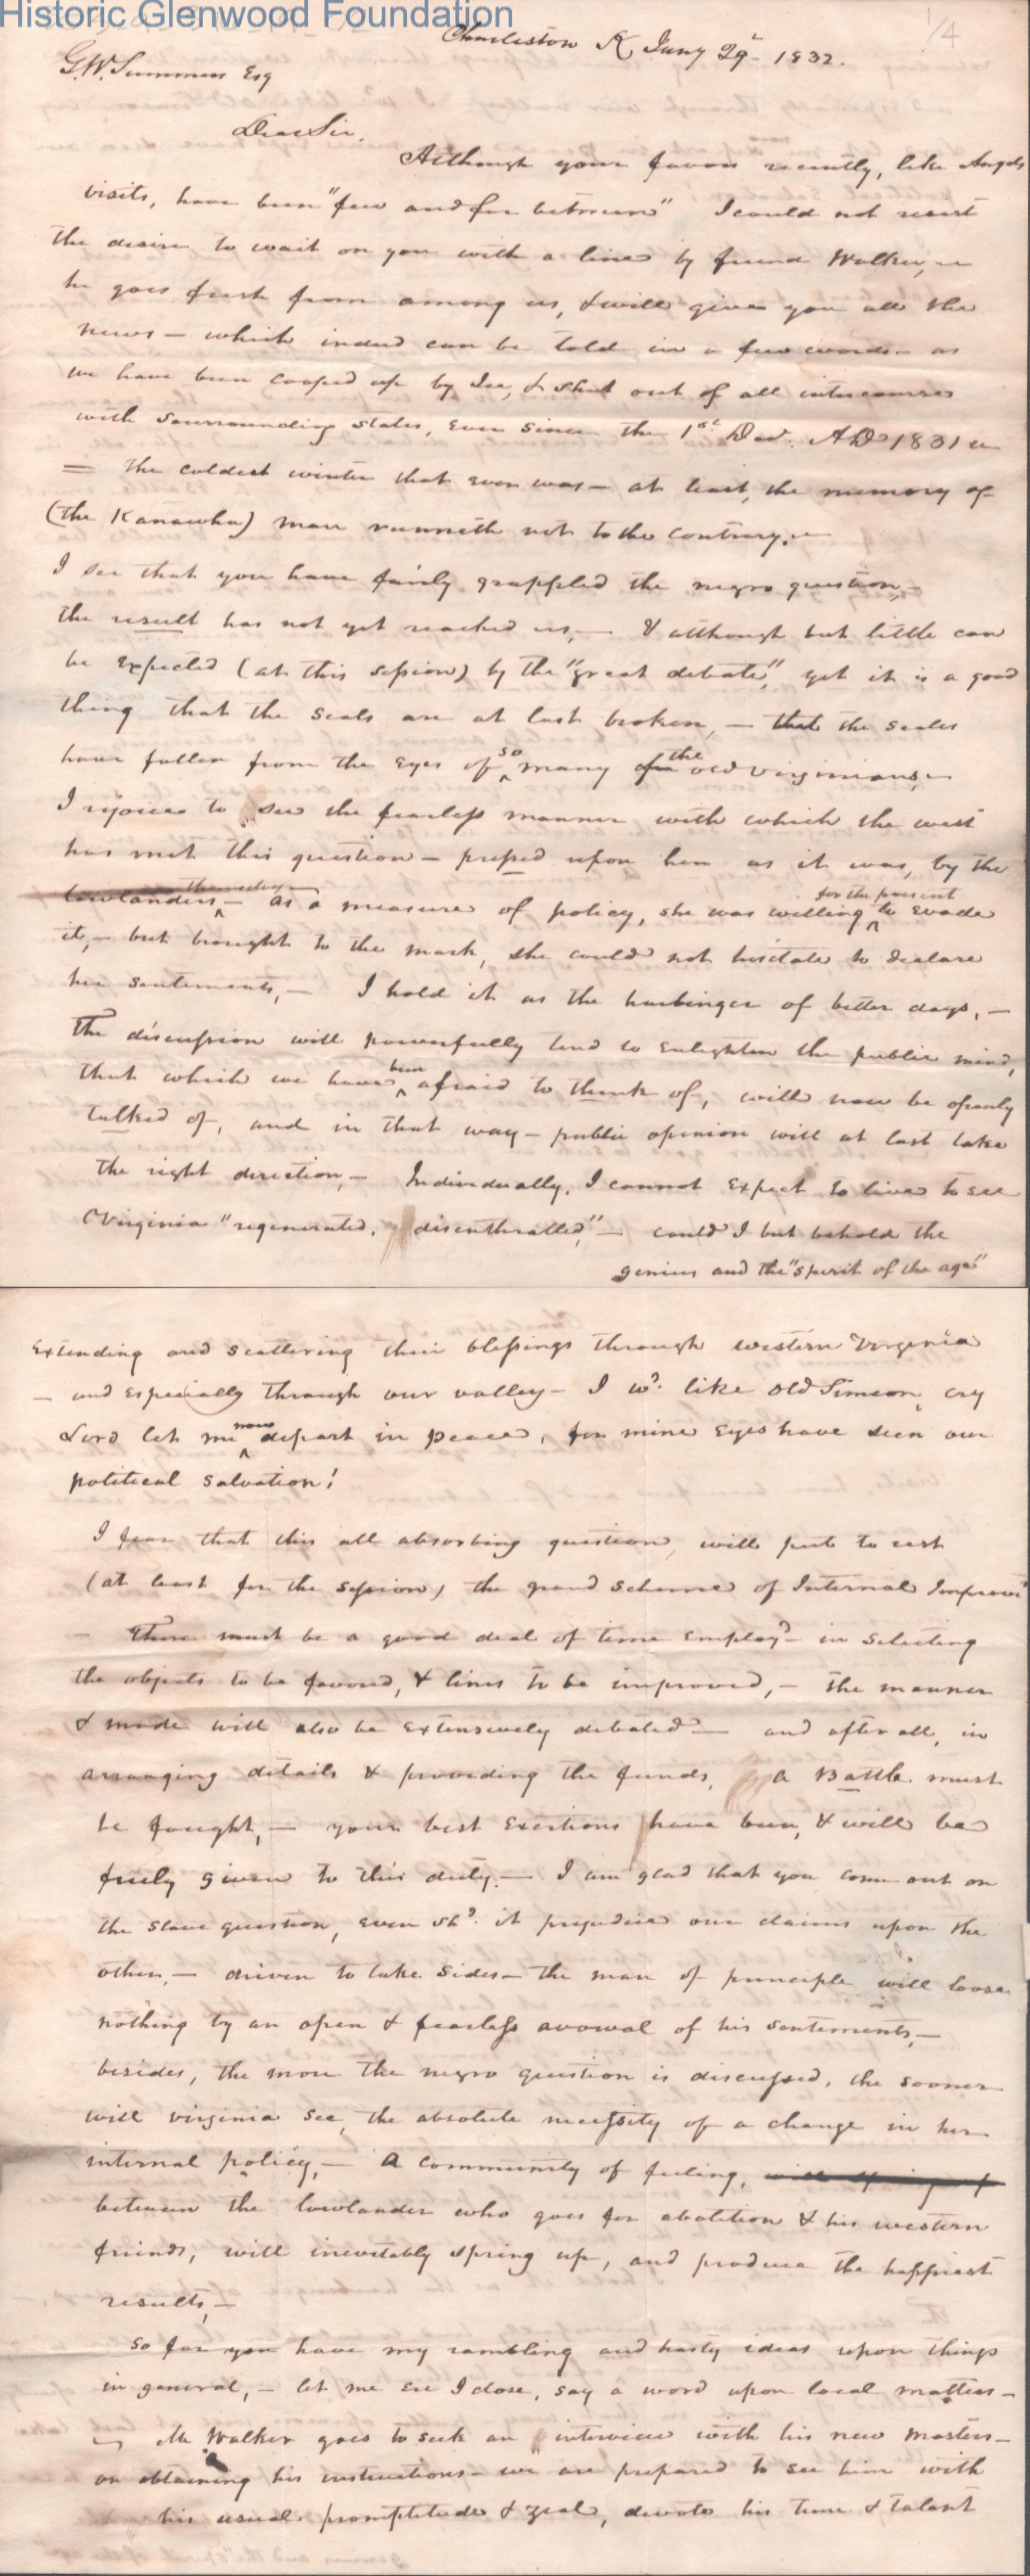 Historic Glenwood Foundation
1/4
Charleston K Jany 29th 1832.
G.W. Summers Esq
Dear Sir,
Although your favors recently, like Angels
visits, have been "few and far between" I could not resist
the desire to wait on you with a line by friend Walker,
he goes fresh from among us, & will give you all the
news — which indeed can be told in a few words — as
we have been cooped up by Ice, & shut out of all intercourse
with sourrounding states, ever since the 1st Dec. AD 1831
= the coldest winter that ever was — at least, the memory of
(the Kanawha) man runneth not to the contrary. —
I see that you have fairly grappled the negro question, —
the result has not yet reached us, — & although but little can
be expected (at this session) by the "great debate", yet it is a good
thing that the seals are at last broken, — that the scales
have fallen from the eyes of so many of the old virginians, —
I rejoice to see the fearless manner with which the west
has met this question — pressed upon her as it was, by the
lowlanders themselves — as a measure of policy, she was willing for the present to evade
it, — but brought to the mark, she could not hesitate to declare
her sentements, — I hold it as the harbinger of better days, —
the discussion will powerfully tend to enlighten the public mind,
that which we have been afraid to think of, will now be openly
talked of, and in that way — public opinion will at last take
the right direction, — Individually, I cannot expect to live to see
Virginia "regenerated, disenthralled," — could I but behold the
genius and the "spirit of the age"
Extending and scattering their blessings through western Virginia
— and especially through our valley — I wd. like old Simeon, cry
Lord let me now depart in peace, for mine Eyes have seen our
political salvation!
I fear that this all absorbing question, will put to rest
(at least for the session) the grand scheme of Internal Improvt
— There must be a good deal of time employd — in selecting
the objects to be favored, & lines to be improved, — the manner
& mode will also be extensively debated — and after all, in
arranging details & providing the funds, a Battle must
be fought, — your best exertions have been, & will be
freely given to this duty. — I am glad that you come out on
the slave question, even shd. it prejudice our claims upon the
other, — driven to take sides — the man of principle will loose
nothing by an open & fearless avowal of his sentements, —
besides, the more the negro question is discussed, the sooner
will virginia see, the absolute necessity of a change in her
internal policy, — A community of feeling,
between the lowlander who goes for abolition & his western
friends, will inevitably spring up, and produce the happiest
results, —
So far you have my rambling and hasty ideas upon things
in general, — let me ere I close, say a word upon local matters —
Mr Walker goes to seek an interview with his new masters —
on obtaining his instructions — we are prepared to see him with
his usual promptitude & zeal, devote his time & talent